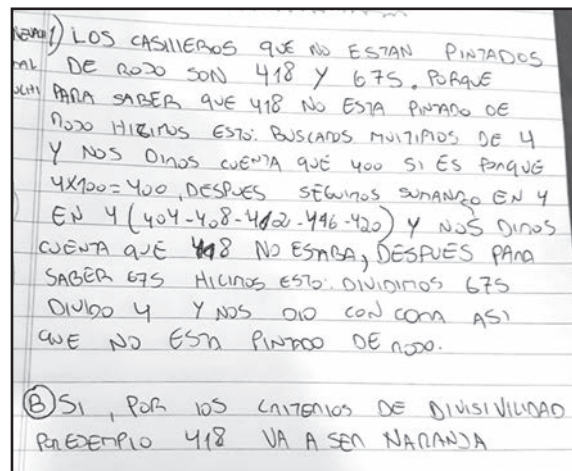 1) LOS CASILLEROS QUE NO ESTAN PINTADOS
DE ROJO SON 418 Y 675. PORQUE
PARA SABER QUE 418 NO ESTA PINTADO DE
ROJO HICIMOS ESTO: BUSCAMOS MULTIPLOS DE 4
Y NOS DIMOS CUENTA QUE 400 SI ES PORQUE
4X100=400, DESPUES SEGUIMOS SUMANDO EN 4
EN 4 (404-408-412-416-420) Y NOS DIMOS
CUENTA QUE 418 NO ESTABA, DESPUES PARA
SABER 675 HICIMOS ESTO: DIVIDIMOS 675
DIVIDO 4 Y NOS DIO CON COMA ASI
QUE NO ESTA PINTADO DE ROJO.
B) SI, POR LOS CRITERIOS DE DIVISIVILIDAD
POR EJEMPLO 418 VA A SER NARANJA